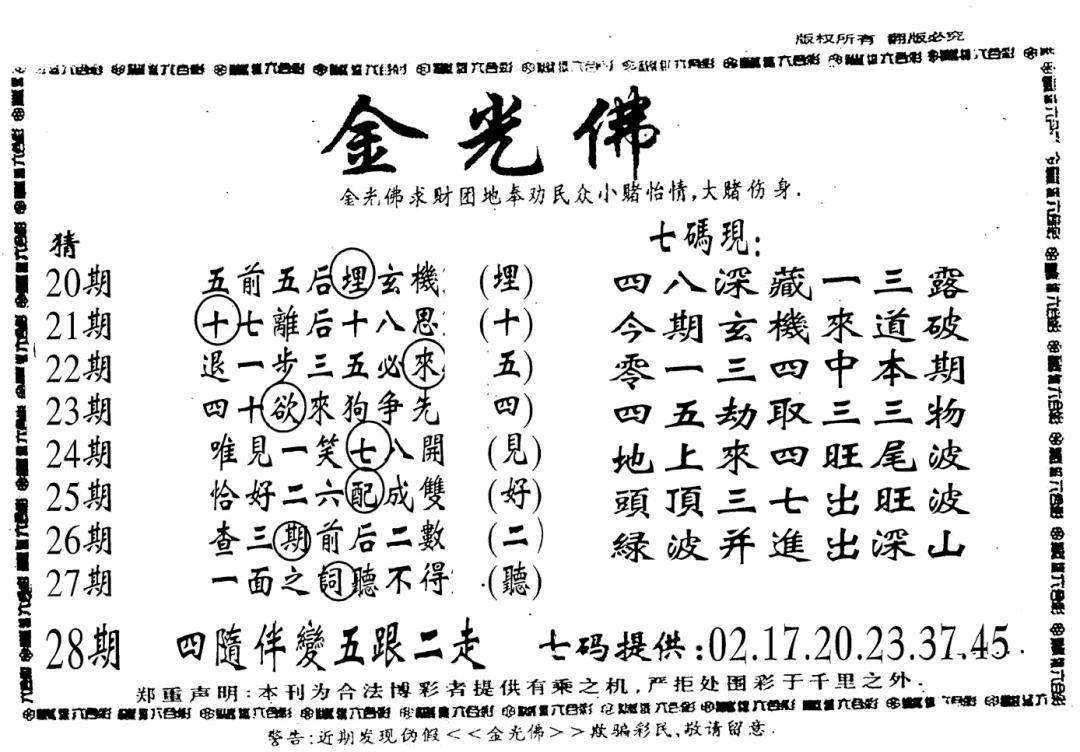 版权所有 翻版必究
金光佛
金光佛求财团地奉劝民众小赌怡情,大赌伤身.
猜
20期 五前五后埋玄機 (埋)
21期 十七離后十八思 (十)
22期 退一步三五必來 五)
23期 四十欲來狗争先 四)
24期 唯見一笑七八開 (見)
25期 恰好二六配成雙 (好)
26期 查三期前后二數 (二)
27期 一面之詞聽不得 (聽)
七碼現:
四八深藏一三露
今期玄機來道破
零一三四中本期
四五劫取三三物
地上來四旺尾波
頭頂三七出旺波
緑波并進出深山
28期 四隨伴變五跟二走 七码提供:02.17.20.23.37.45.
郑重声明:本刊为合法博彩者提供有乘之机,严拒处围彩于千里之外.
警告:近期发现伪假<<金光佛>>欺骗彩民,敬请留意.